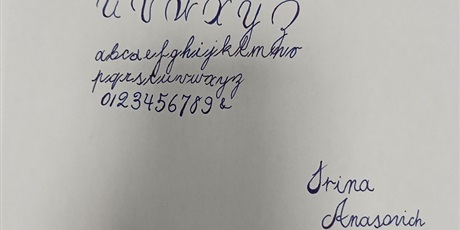 U V W X Y Z
abcdefghijklmno
pqrstuvwxyz
0123456789 &
Irina
Anasovich